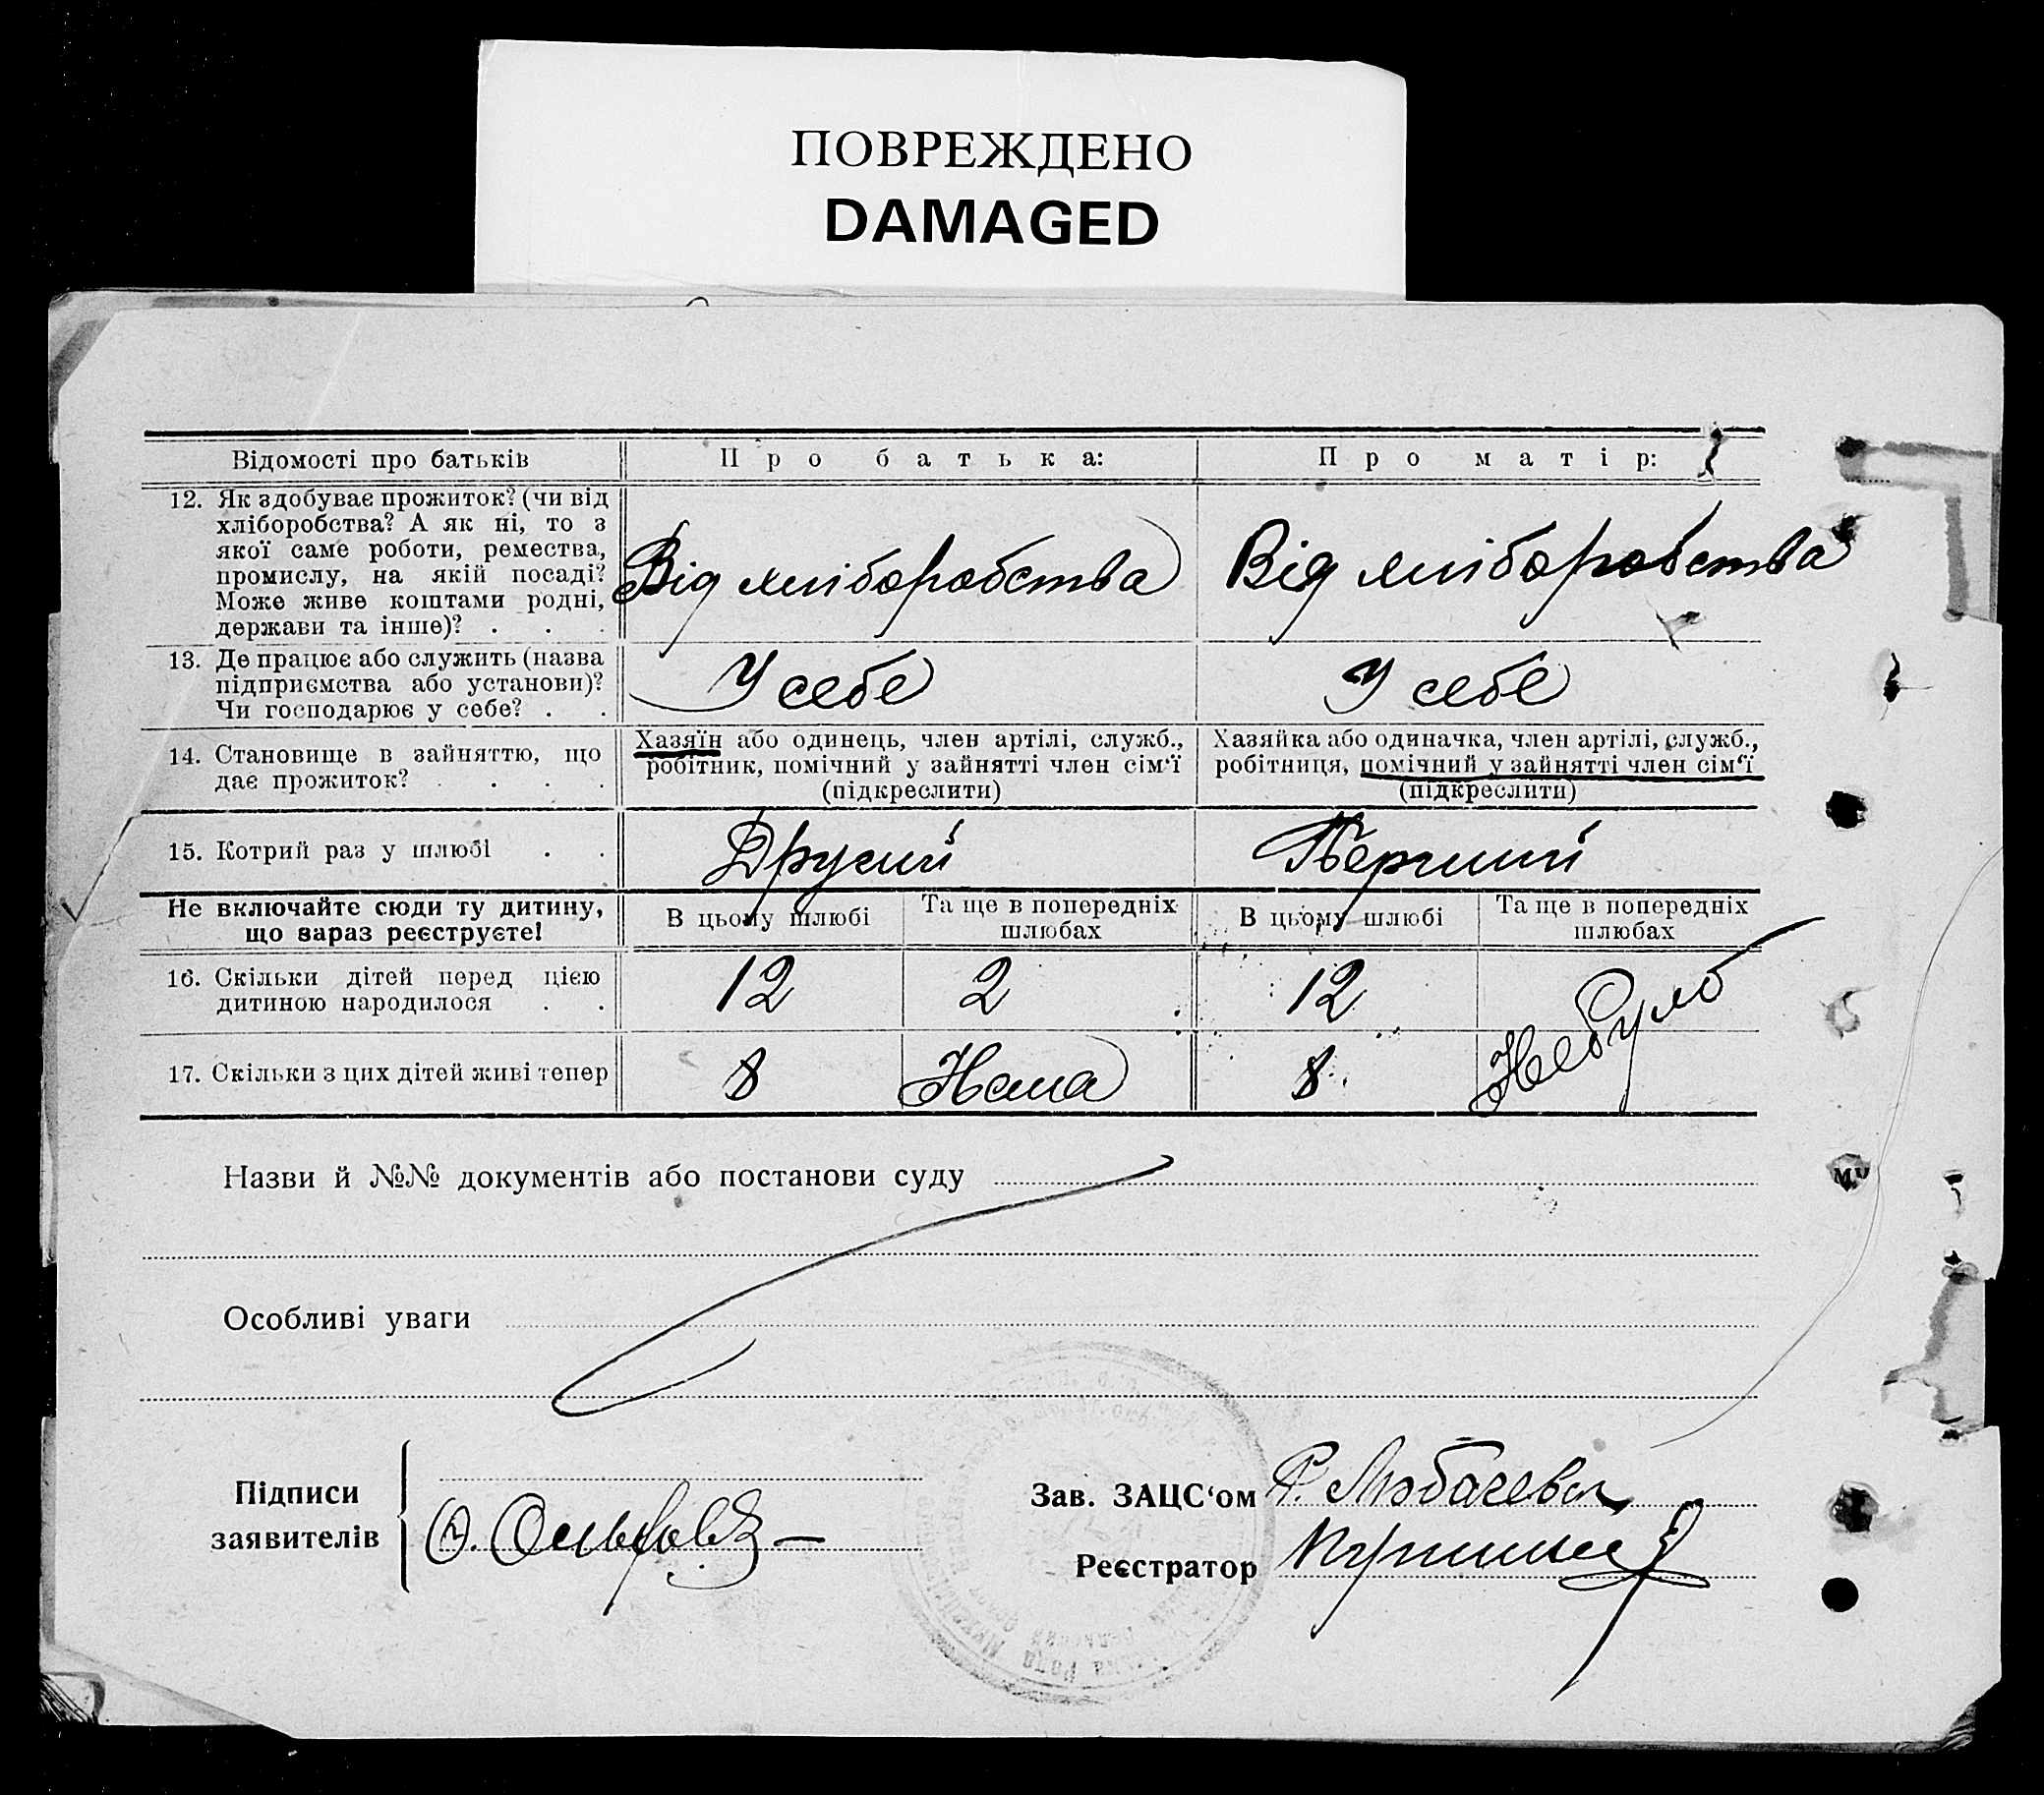 ПОВРЕЖДЕНО
DAMAGED
Відомості про батьків
Про батька:
Про матір:
12. Як здобуває прожиток? (чи від
хліборобства? А як ні, то з
якої саме роботи, ремества,
промислу, на якій посаді?
Може живе коштами родні,
держави та інше)? . . .
Від хліборобства
Від хліборобства
13. Де працює або служить (назва
підприємства або установи)?
Чи господарює у себе? . .
У себе
У себе
14. Становище в зайняттю, що
дає прожиток? . . . .
Хазяїн або одинець, член артілі, служб.,
робітник, помічний у зайнятті член сім‘ї
(підкреслити)
Хазяйка або одиначка, член артілі, служб.,
робітниця, помічний у зайнятті член сім‘ї
(підкреслити)
15. Котрий раз у шлюбі . .
Другий
Перший
Не включайте сюди ту дитину,
що зараз реєструєте!
В цьому шлюбі
Та ще в попередніх
шлюбах
В цьому шлюбі
Та ще в попередніх
шлюбах
16. Скільки дітей перед цією
дитиною народилося . .
12
2
12
Небуло
17. Скільки з цих дітей живі тепер
8
Нема
8
Назви й №№ документів або постанови суду
Особливі уваги
Підписи
заявителів
Зав. ЗАЦС‘ом
Реєстратор